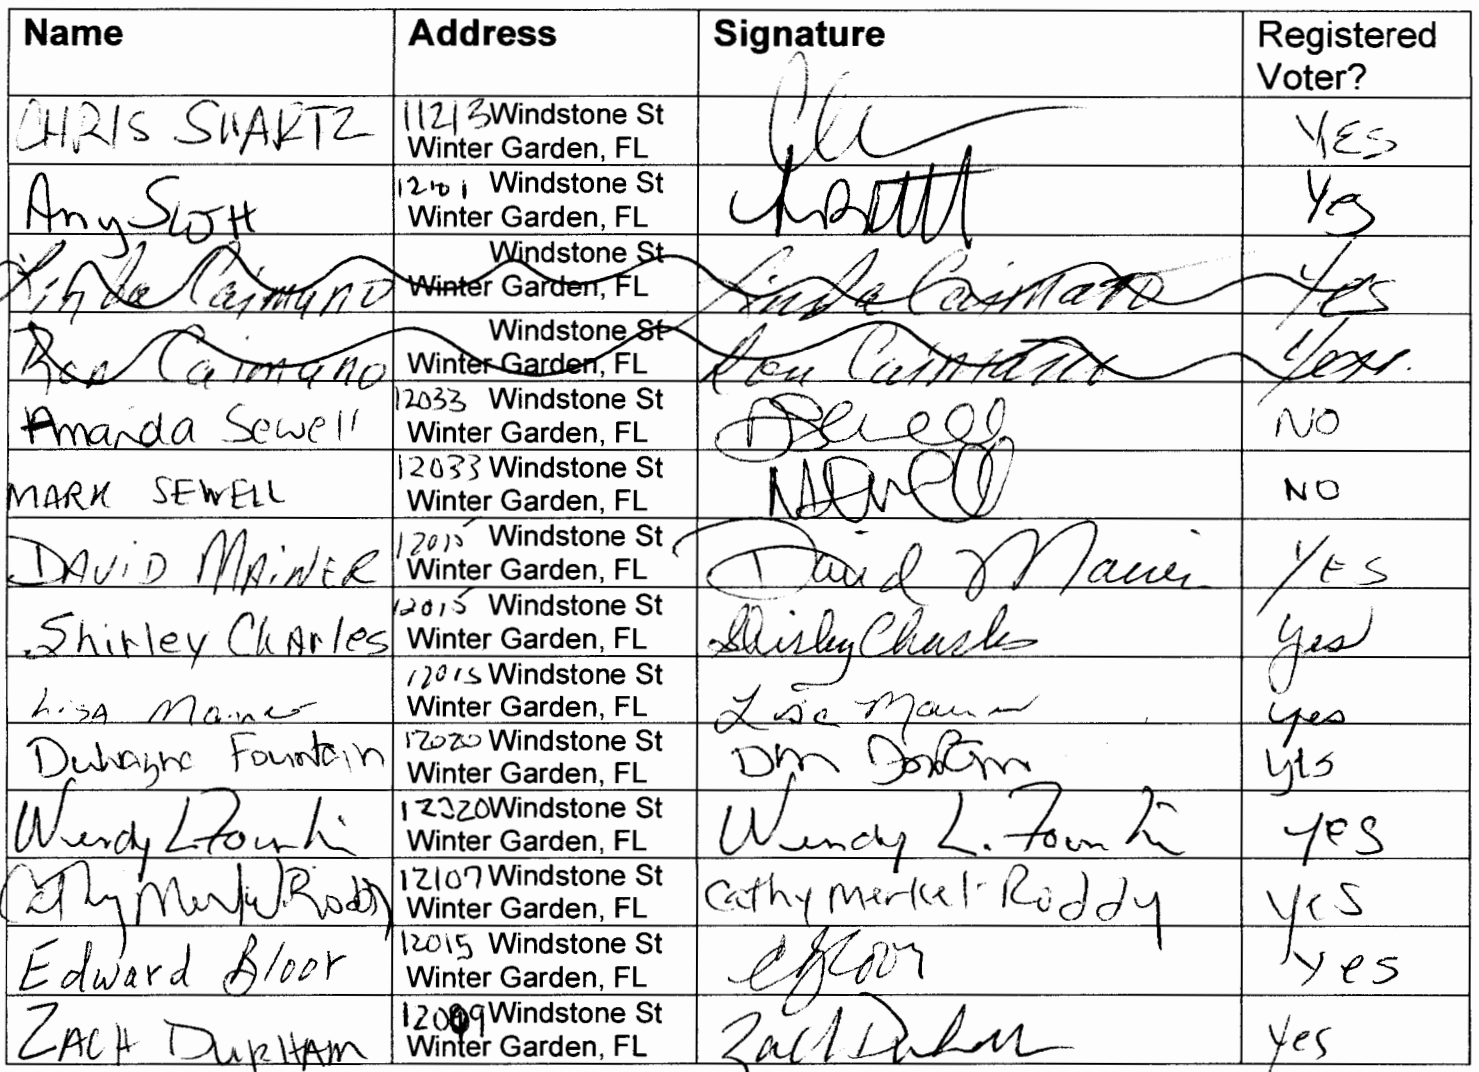 Name Address Signature Registered
Voter?
CHRIS SWARTZ 11213 Windstone St
Winter Garden, FL YES
Amy Scott 12101 Windstone St
Winter Garden, FL Yes
Linda Caimano Windstone St
Winter Garden, FL Linda Caimano Yes
Ron Caimano Windstone St
Winter Garden, FL Ron Caimano Yes
Amanda Sewell 12033 Windstone St
Winter Garden, FL ASewell NO
MARK SEWELL 12033 Windstone St
Winter Garden, FL MSewell NO
DAVID MAINER 12015 Windstone St
Winter Garden, FL David Mainer YES
Shirley CHArles 12015 Windstone St
Winter Garden, FL Shirley Charles Yes
LISA Mainer 12015 Windstone St
Winter Garden, FL Lisa Mainer yes
Duwayne Fountain 12020 Windstone St
Winter Garden, FL yes
Wendy L Fountain Windstone St
Winter Garden, FL Wendy L. Fountain YES
Cathy Merkel Roddy 12107 Windstone St
Winter Garden, FL Cathy Merkel-Roddy YES
Edward Bloor 12015 Windstone St
Winter Garden, FL EBloor Yes
ZACH DURHAM 12009 Windstone St
Winter Garden, FL Zach Durham Yes